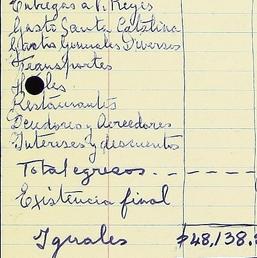 Entregas a P. Reyes
Gasto Santa Catalina
Gastos Generales Diversos
Transportes
Restaurantes
Deudores y Acreedores
Intereses y descuentos
Total egresos. - - - - - -
Existencia final
Iguales ₱48,138.